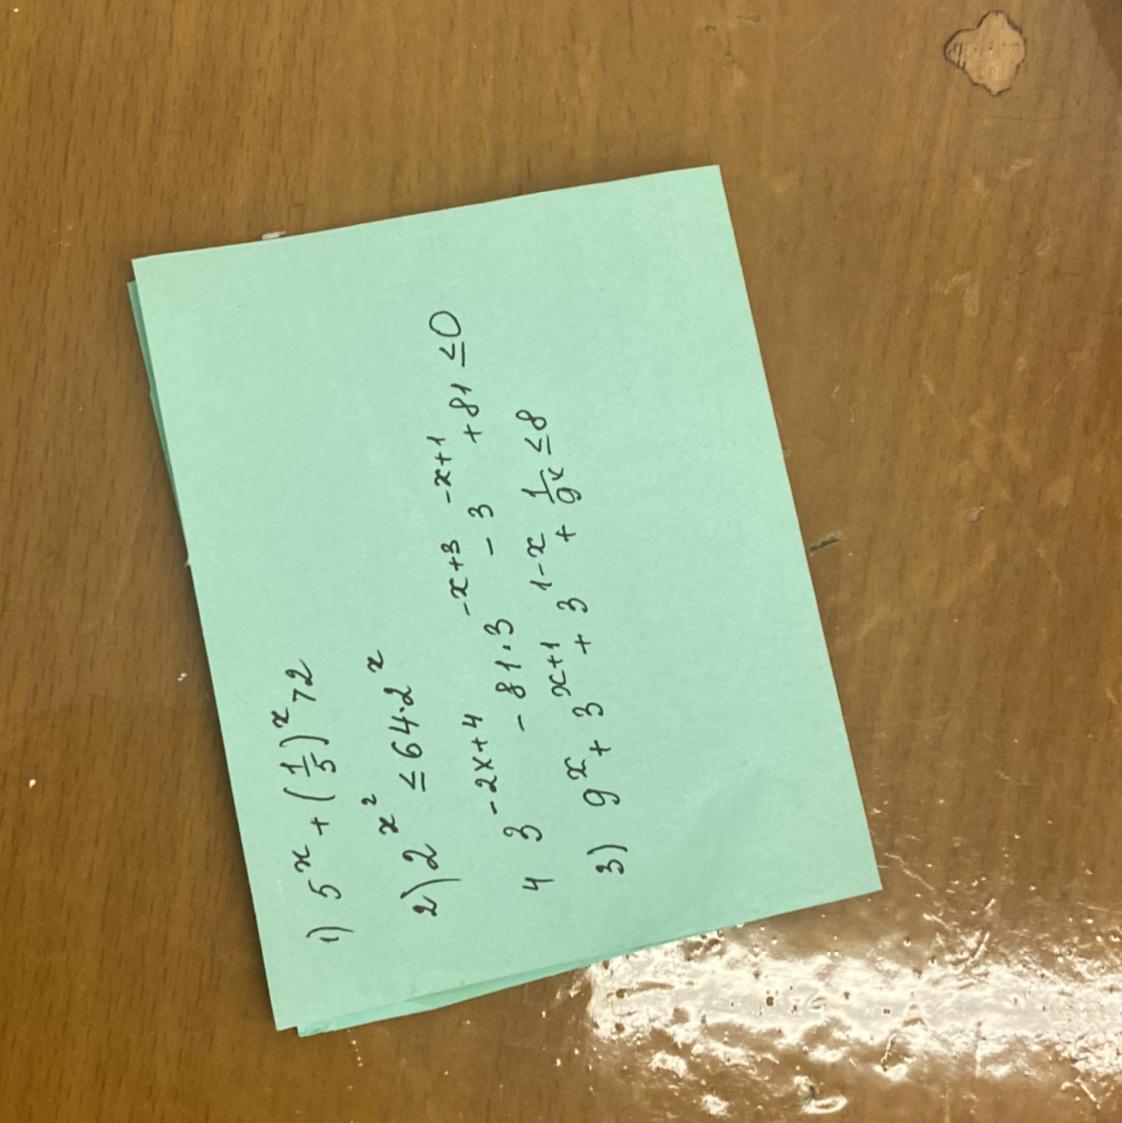 1) 5^x + (1/5)^x > 2
2) 2^{x^2} ≤ 64·2^x
4 3^{-2x+4} - 81·3^{-x+3} - 3^{-x+1} + 81 ≤ 0
3) 9^x + 3^{x+1} + 3^{1-x} + 1/9^x ≤ 8